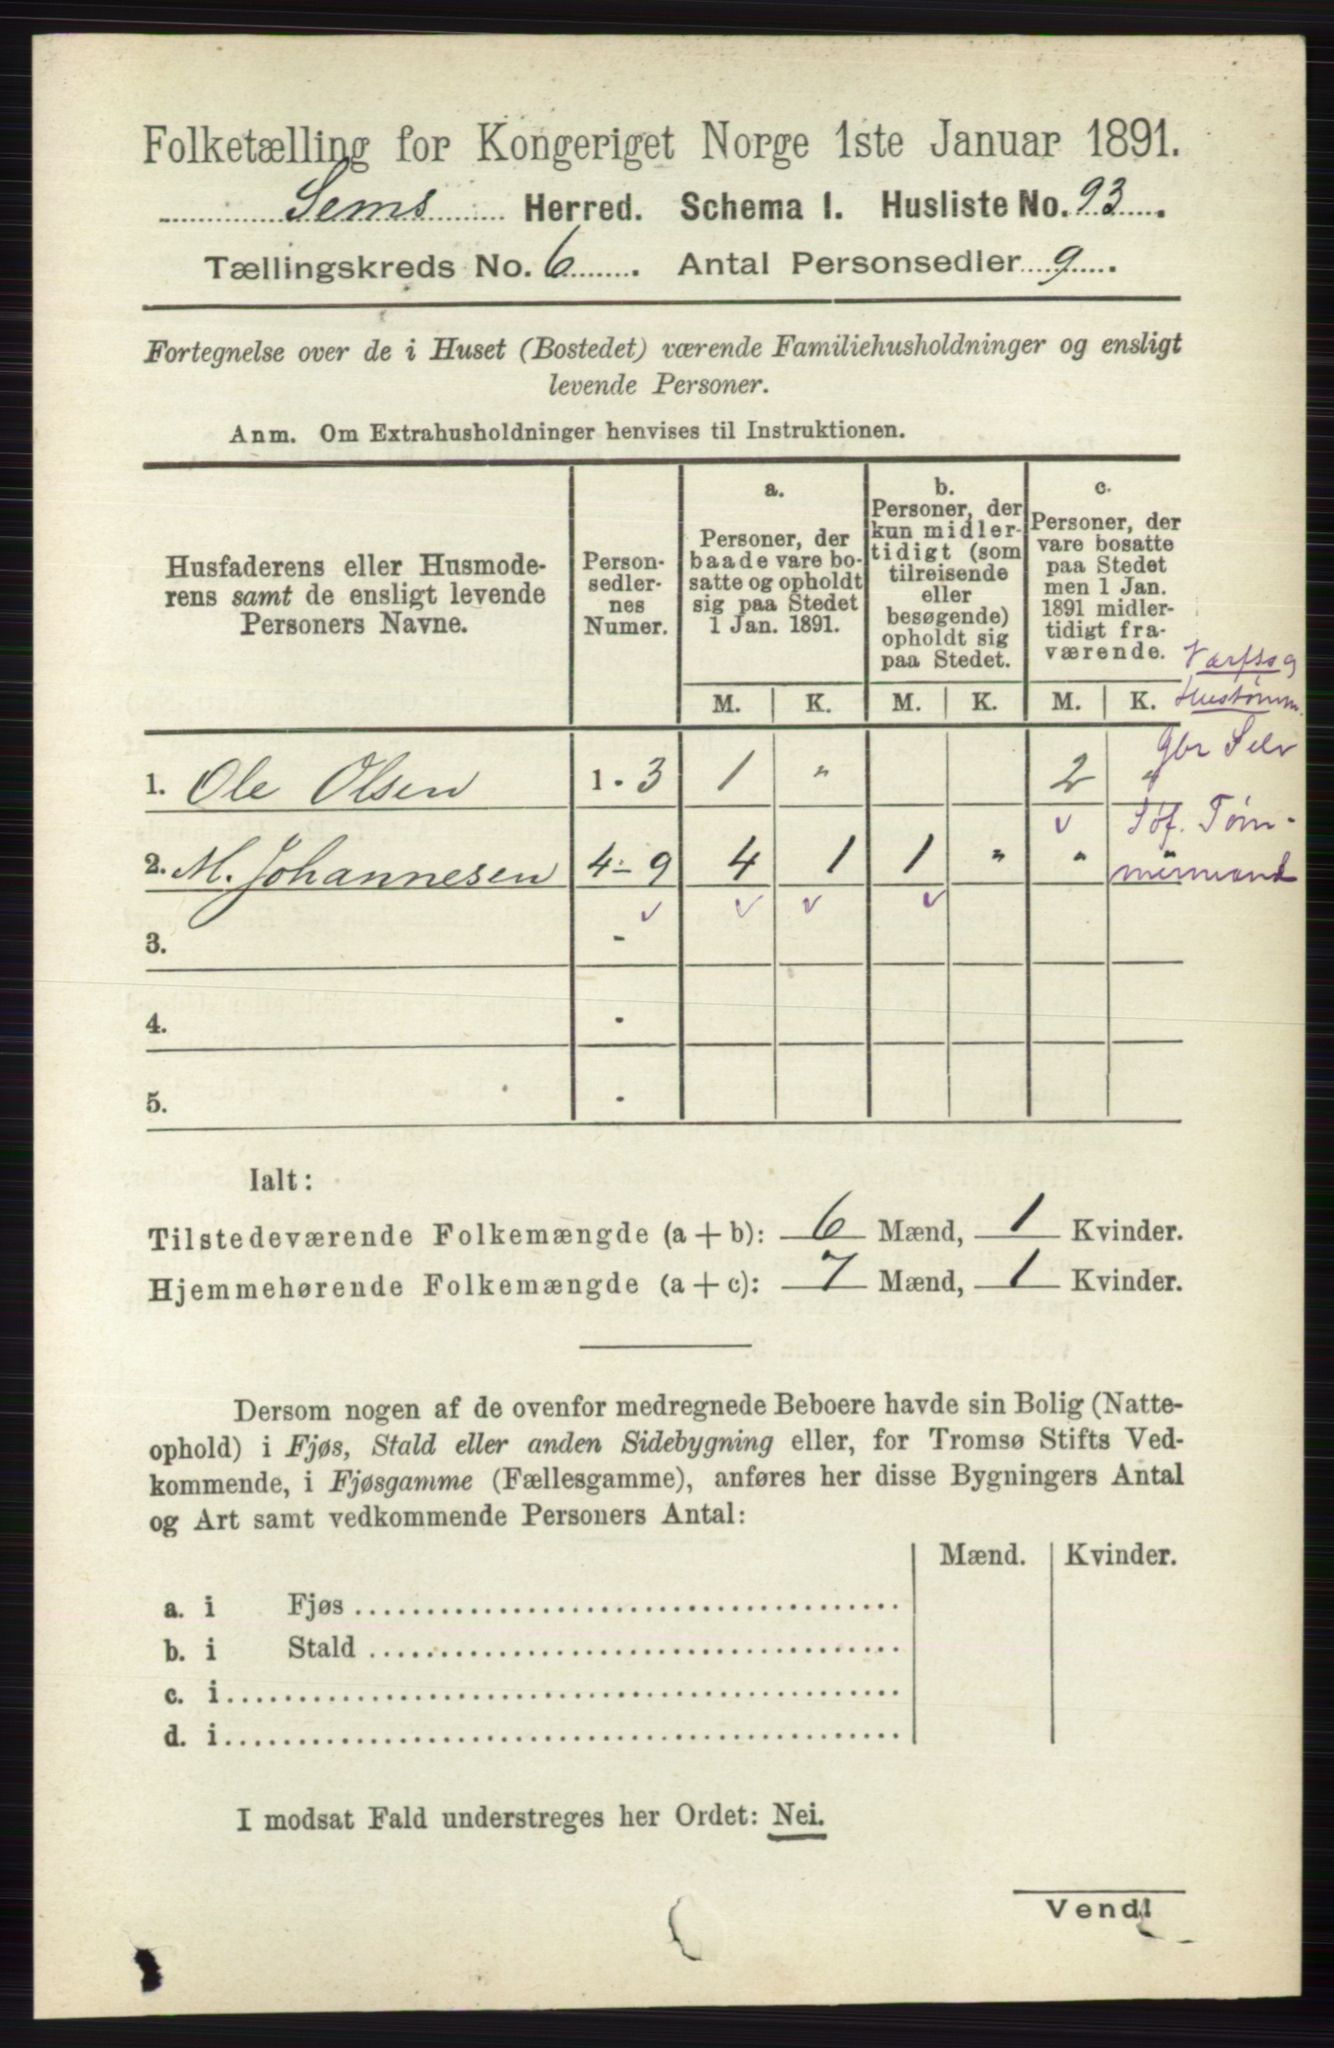 Folketælling for Kongeriget Norge 1ste Januar 1891.
Sems Herred. Schema I. Husliste No. 93.
Tællingskreds No. 6. Antal Personsedler 9.
Fortegnelse over de i Huset (Bostedet) værende Familiehusholdninger og ensligt
levende Personer.
Anm. Om Extrahusholdninger henvises til Instruktionen.
Husfaderens eller Husmode-
rens samt de ensligt levende
Personers Navne.
Person-
sedler-
nes
Numer.
a.
Personer, der
baade vare bo-
satte og opholdt
sig paa Stedet
1 Jan. 1891.
b.
Personer, der
kun midler-
tidigt (som
tilreisende
eller
besøgende)
opholdt sig
paa Stedet.
c.
Personer, der
vare bosatte
paa Stedet
men 1 Jan.
1891 midler-
tidigt fra-
værende.
M. K. M. K. M. K.
Værfsog
Hustømm.
Gbr Selv
1. Ole Olsen 1 - 3 1 " 2 "
Tøm-
2. M. Johannesen 4 - 9 4 1 1 " "
mermand
3. -
4. -
5. -
Ialt:
Tilstedeværende Folkemængde (a + b): 6 Mænd, 1 Kvinder.
Hjemmehørende Folkemængde (a + c): 7 Mænd, 1 Kvinder.
Dersom nogen af de ovenfor medregnede Beboere havde sin Bolig (Natte-
ophold) i Fjøs, Stald eller anden Sidebygning eller, for Tromsø Stifts Ved-
kommende, i Fjøsgamme (Fællesgamme), anføres her disse Bygningers Antal
og Art samt vedkommende Personers Antal:
Mænd. Kvinder.
a. i Fjøs
b. i Stald
c. i
d. i
I modsat Fald understreges her Ordet: Nei.
Vend!